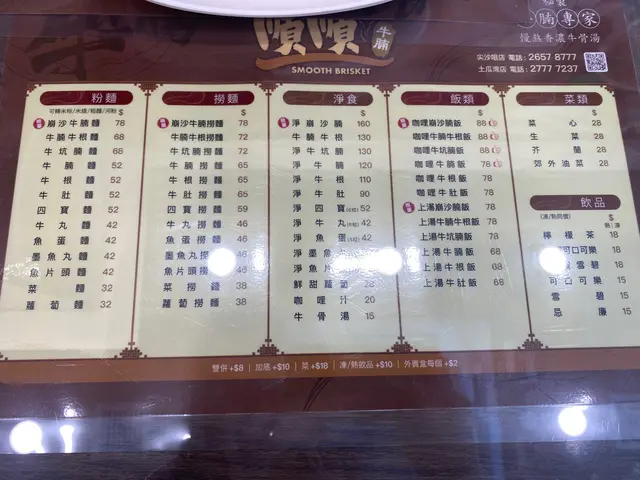 順順
牛腩
SMOOTH BRISKET
腩專家
慢熬香濃牛骨湯
尖沙咀店 電話: 2658 8777
土瓜灣店 電話: 2777 7237
粉麵
可轉米粉/米線/粗麵/河粉 $
崩沙牛腩麵 78
牛腩牛根麵 68
牛坑腩麵 68
牛腩麵 52
牛根麵 52
牛肚麵 52
四寶麵 52
牛丸麵 42
魚蛋麵 42
墨魚丸麵 42
魚片頭麵 42
菜麵 32
蘿蔔麵 32
撈麵
$
崩沙牛腩撈麵 78
牛腩牛根撈麵 72
牛坑腩撈麵 72
牛腩撈麵 65
牛根撈麵 65
牛肚撈麵 65
四寶撈麵 59
牛丸撈麵 46
魚蛋撈麵 46
墨魚丸撈麵 46
魚片頭撈麵 46
菜撈麵 38
蘿蔔撈麵 38
淨食
$
淨崩沙腩 160
淨牛根腩 130
淨牛坑腩 130
淨牛腩 120
淨牛根 110
淨牛肚 90
淨四寶 52
淨牛丸 42
淨魚蛋 42
淨墨魚丸
淨魚片頭
鮮甜蘿蔔 28
咖喱汁 20
牛骨湯 15
飯類
$
咖喱崩沙腩飯 88
咖喱牛腩牛根飯 88
咖喱牛坑腩飯 88
咖喱牛腩飯 78
咖喱牛根飯 78
咖喱牛肚飯 78
上湯崩沙腩飯 78
上湯牛腩牛根飯 78
上湯牛坑腩飯 78
上湯牛腩飯 68
上湯牛根飯 68
上湯牛肚飯 68
菜類
$
菜心 28
生菜 28
芥蘭 28
郊外油菜 28
飲品
(凍/熱同價) $
熱|凍
檸檬茶 18
可口可樂 18
雪碧 18
可口可樂 15
雪碧 15
忌廉 15
雙併 +$8 | 加底 +$10 | 菜 +$18 | 凍/熱飲品 +$10 | 外賣盒每個 +$2